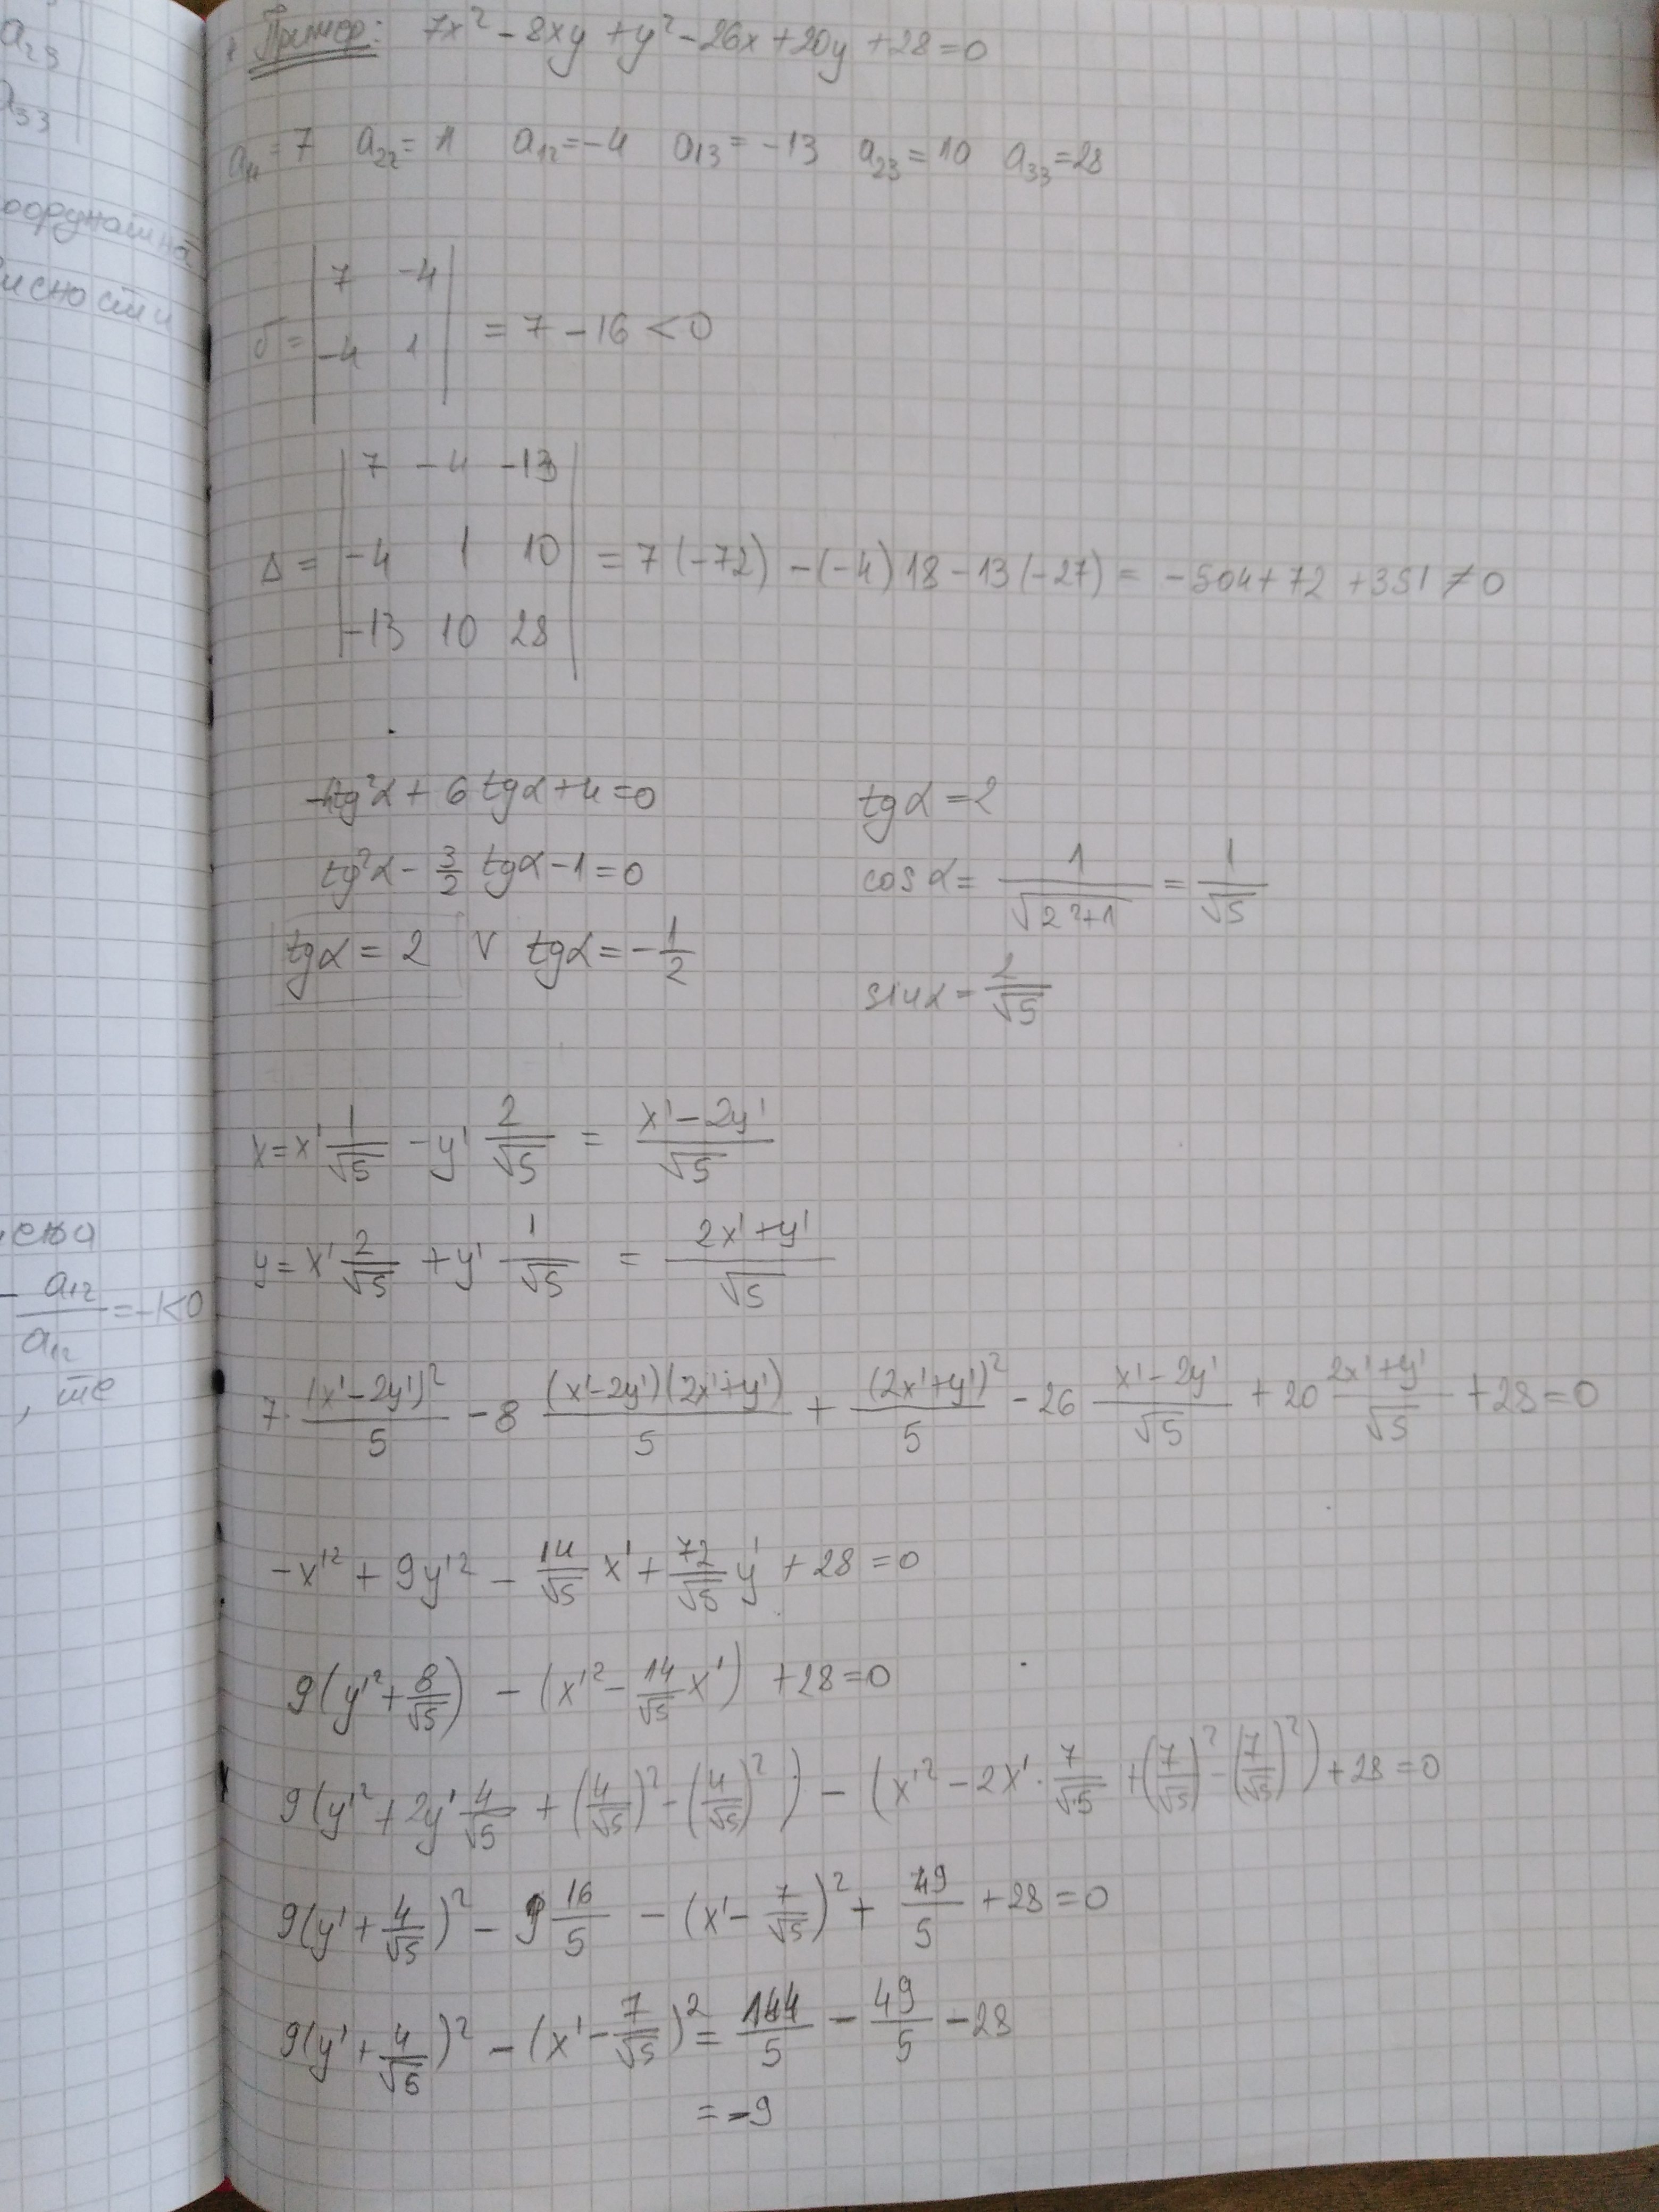 a₂₃
a₃₃
оординатна
исности
ства
- a₁₂/a₁₂ = -1<0
, те
Пример: 7x² - 8xy + y² - 26x + 20y + 28 = 0
a₁₁ = 7 a₂₂ = 1 a₁₂ = -4 a₁₃ = -13 a₂₃ = 10 a₃₃ = 28
δ = |7 -4; -4 1| = 7 - 16 < 0
Δ = |7 -4 -13; -4 1 10; -13 10 28| = 7(-72) - (-4)18 - 13(-27) = -504 + 72 + 351 ≠ 0
-4tg²α + 6tgα + 4 = 0
tg²α - 3/2 tgα - 1 = 0
tgα = 2 ∨ tgα = -1/2
tgα = 2
cosα = 1/√(2²+1) = 1/√5
sinα = 2/√5
x = x' 1/√5 - y' 2/√5 = (x' - 2y')/√5
y = x' 2/√5 + y' 1/√5 = (2x' + y')/√5
7·(x' - 2y')²/5 - 8 (x' - 2y')(2x' + y')/5 + (2x' + y')²/5 - 26 (x' - 2y')/√5 + 20 (2x' + y')/√5 + 28 = 0
-x'² + 9y'² - 14/√5 x' + 72/√5 y' + 28 = 0
9(y'² + 8/√5) - (x'² - 14/√5 x') + 28 = 0
9(y'² + 2y' 4/√5 + (4/√5)² - (4/√5)²) - (x'² - 2x'·7/√5 + (7/√5)² - (7/√5)²) + 28 = 0
9(y' + 4/√5)² - 9 16/5 - (x' - 7/√5)² + 49/5 + 28 = 0
9(y' + 4/√5)² - (x' - 7/√5)² = 144/5 - 49/5 - 28
= -9